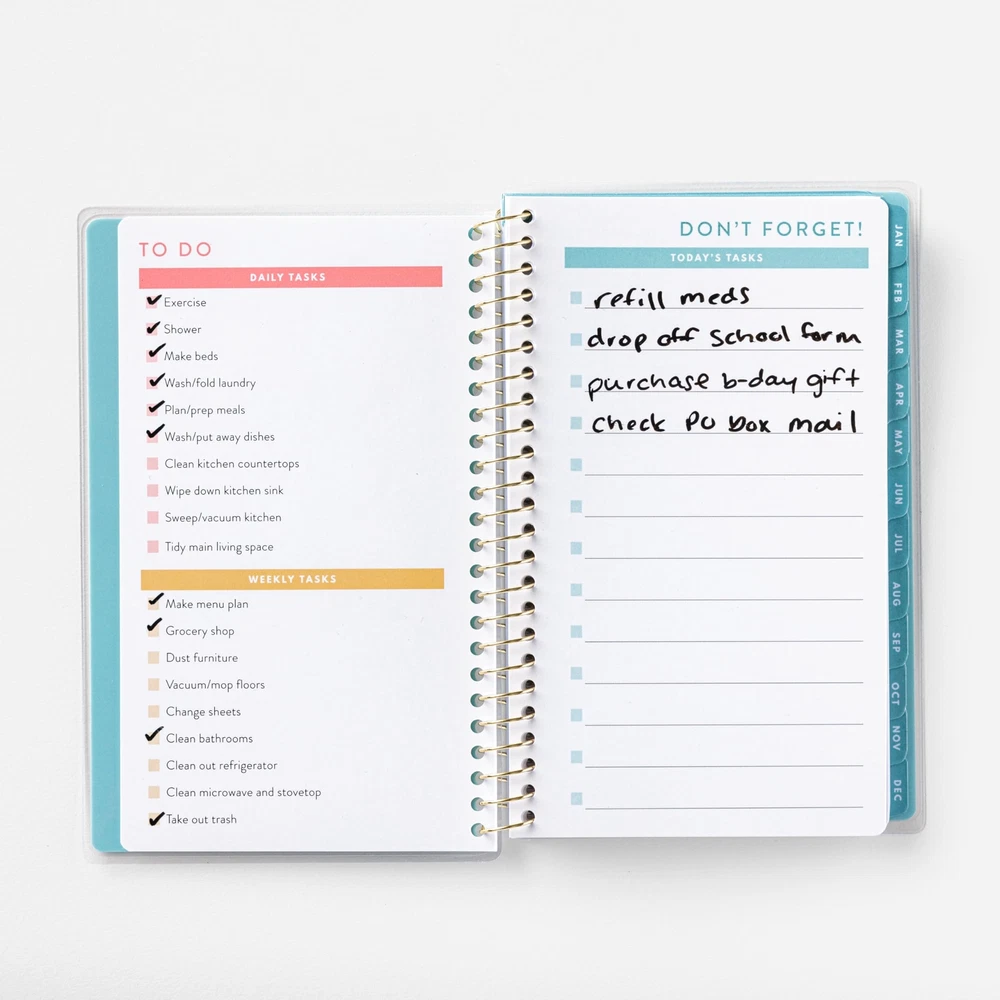 TO DO
DAILY TASKS
Exercise
Shower
Make beds
Wash/fold laundry
Plan/prep meals
Wash/put away dishes
Clean kitchen countertops
Wipe down kitchen sink
Sweep/vacuum kitchen
Tidy main living space
WEEKLY TASKS
Make menu plan
Grocery shop
Dust furniture
Vacuum/mop floors
Change sheets
Clean bathrooms
Clean out refrigerator
Clean microwave and stovetop
Take out trash
DON'T FORGET!
TODAY'S TASKS
refill meds
drop off School form
purchase b-day gift
check PO box mail
JAN
FEB
MAR
APR
MAY
JUN
JUL
AUG
SEP
OCT
NOV
DEC